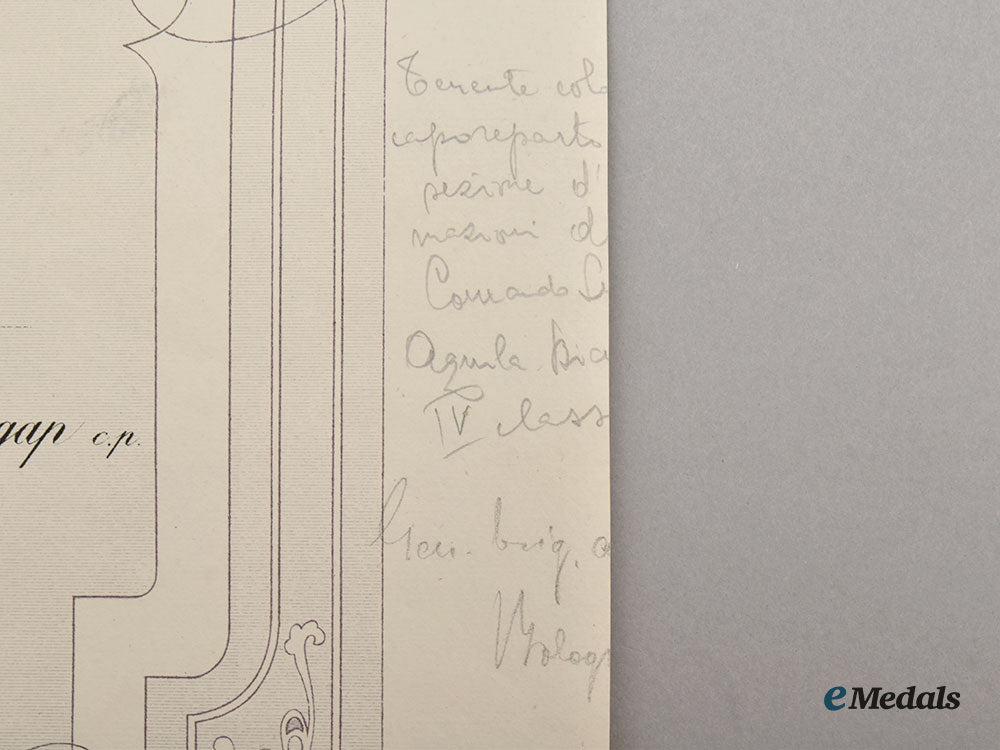 Tenente colo
caporeparto
sezione d'
mazioni d
Comando S
Aquila Bia
IV class
gap c.p.
Gen. brig. a
Bolog
eMedals